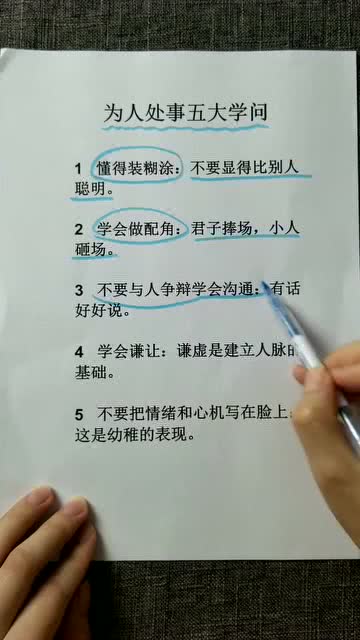 为人处事五大学问
1 懂得装糊涂：不要显得比别人
聪明。
2 学会做配角：君子捧场，小人
砸场。
3 不要与人争辩学会沟通：有话
好好说。
4 学会谦让：谦虚是建立人脉的
基础。
5 不要把情绪和心机写在脸上：
这是幼稚的表现。